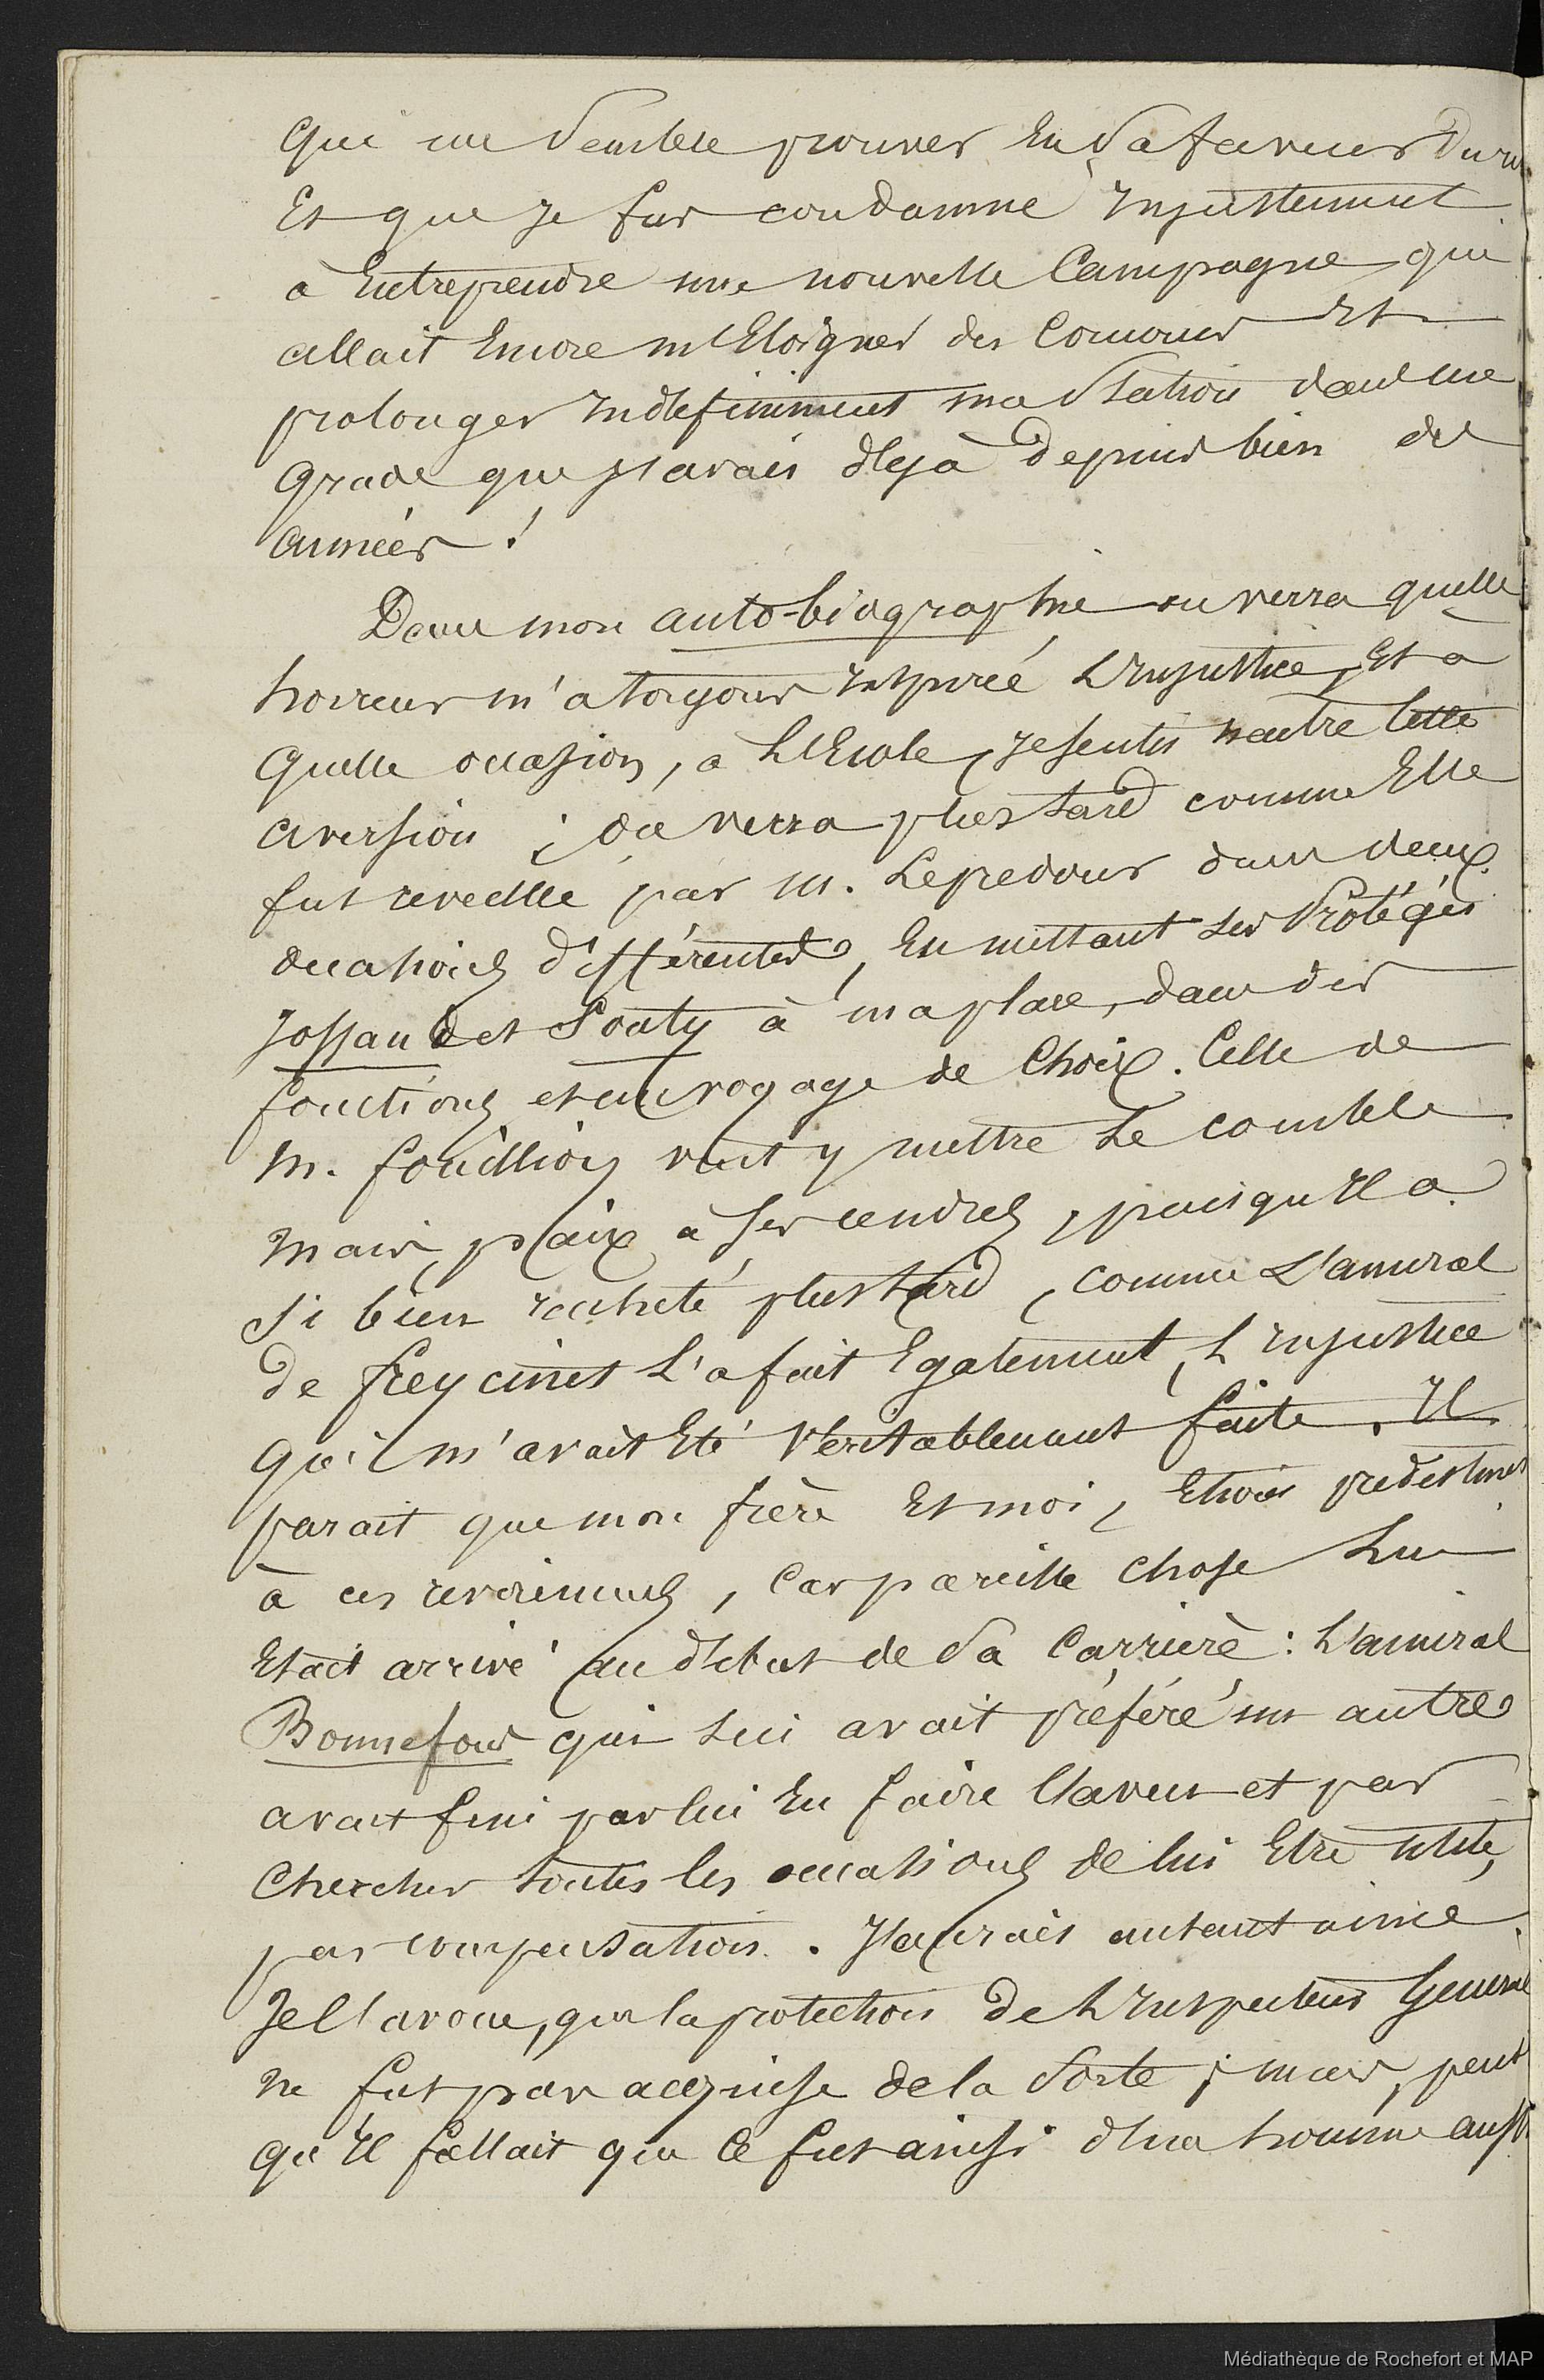 qui me semble prouver en sa faveur
Et que je fus condamné Injustement
à Entreprendre une nouvelle Campagne qui
allait Encore m'Eloigner des Concours Et
prolonger Indéfiniment ma station dans un
grade que j'avais déjà depuis bien des
années !
Dans mon auto-biographie on verra quelle
horreur m'a toujours Inspirée L'Injustice, Et à
quelle occasion, à L'Ecole, je sentis naître Cette
aversion ; on verra plus tard comme Elle
fut reveillée par M. Lepredour dans deux
occasions différentes, En mettant ses Protégés
Jossau et Souty à ma place, dans des
fonctions et un voyage de Choix. Celle de
M. fouillioy vint y mettre Le comble
Mais, paix à ses cendres, puisqu'Il a
si bien racheté plus tard, comme L'amiral
de freycinet L'a fait Egalement, L'Injustice
qui m'avait Eté Véritablement faite. Il
parait que mon frère Et moi, Etions prédestinés
à ces reviremens, Car pareille chose Lui
Etait arrivé au début de sa Carrière : L'amiral
Bonnefoux qui lui avait préféré un autre
avait fini par lui En faire L'aveu et par
Chercher toutes les occasions de lui Etre utile,
par compensation. J'aurais autant aimé,
Je L'avoue, que la protection de L'Inspecteur Général
ne fut pas acquise de la sorte ; mais, peut
qu'Il fallait que Ce fut ainsi d'un homme aussi
Médiathèque de Rochefort et MAP